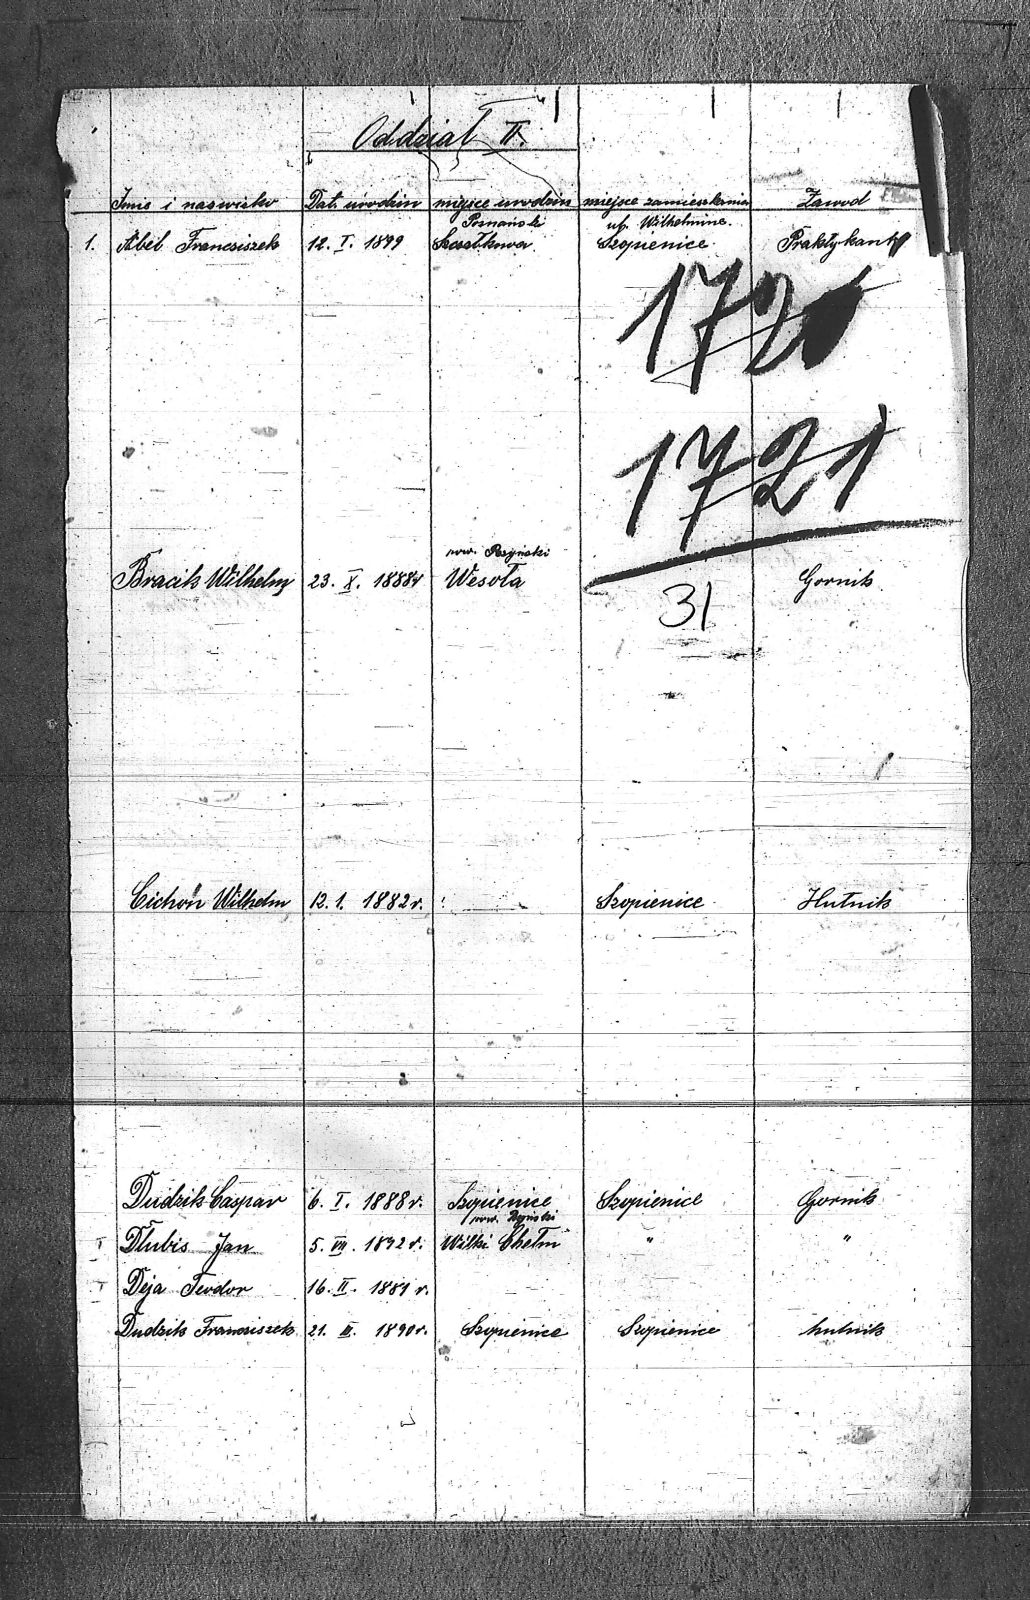 Oddział II.
Imie i naswisko Dat. urodzin miejsce urodzin miejsce zamieszkania Zawod
Poznański up. Wilhelmine
1. Abel Franciszek 12. I. 1899 Szopienice Praktykant
172
1721
31
pow. Pszyński
Bracik Wilhelm 23. X. 1888r Wesoła Gornik
Cichoń Wilhelm 12. 1. 1882 r. Szopienice Hutnik
Dudzik Caspar 6. I. 1888 r. Szopienice Szopienice Gornik
pow. Pszyński
Dlubis Jan 5. VII. 1892 r. Wilki Chełm " "
Deja Teodor 16. II. 1881 r.
Dudzik Franciszek 21. III. 1890 r. Szopienice Szopienice hutnik